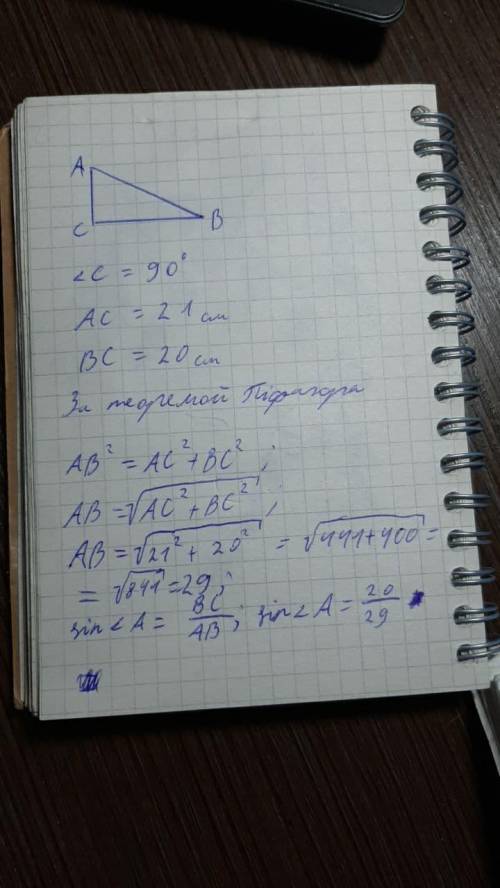 A
C
B
<C = 90°
AC = 21 см
BC = 20 см
За теоремой Піфагора
AB² = AC² + BC²;
AB = √AC² + BC²;
AB = √21² + 20² = √441+400 =
= √841 = 29;
sin<A = BC/AB; sin<A = 20/29